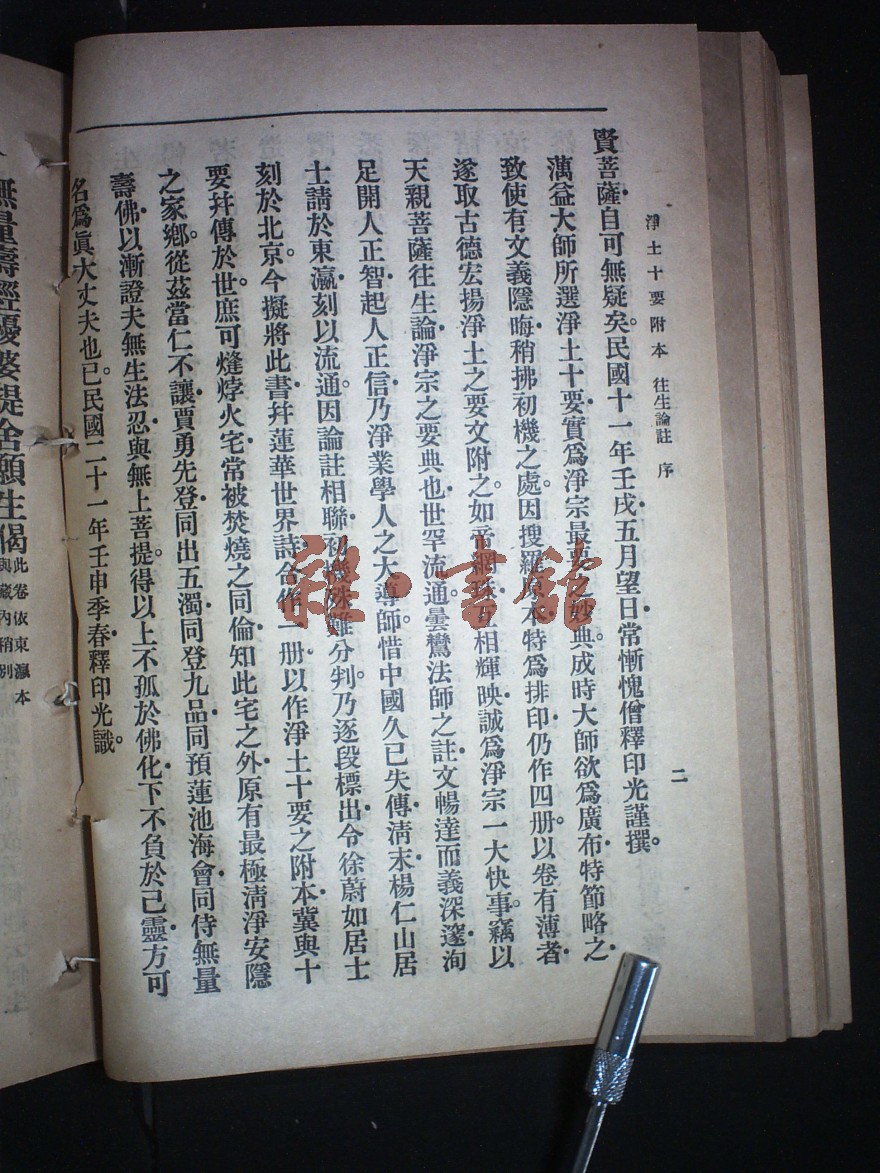 淨土十要附本 往生論註 序
二
賢菩薩自可無疑矣。民國十一年壬戌五月望日常慚愧僧釋印光謹撰。
蕅益大師所選淨土十要實爲淨宗最要之妙典。成時大師欲爲廣布特節略之
致使有文義隱晦稍拂初機之處。因搜羅原本特爲排印仍作四册。以卷有薄者
遂取古德宏揚淨土之要文附之。如帝網珠互相輝映誠爲淨宗一大快事。竊以
天親菩薩往生論淨宗之要典也世罕流通。曇鸞法師之註文暢達而義深邃洵
足開人正智起人正信乃淨業學人之大導師惜中國久已失傳清末楊仁山居
士請於東瀛刻以流通。因論註相聯初機殊難分判。乃逐段標出令徐蔚如居士
刻於北京。今擬將此書幷蓮華世界詩合作一册以作淨土十要之附本冀與十
要幷傳於世。庶可熢㶿火宅常被焚燒之同倫知此宅之外原有最極清淨安隱
之家鄉。從茲當仁不讓賈勇先登同出五濁同登九品同預蓮池海會同侍無量
壽佛以漸證夫無生法忍與無上菩提。得以上不孤於佛化下不負於己靈方可
名爲眞大丈夫也已。民國二十一年壬申季春釋印光識。
無量壽經優婆提舍願生偈
此卷依東瀛本
與藏內稍別